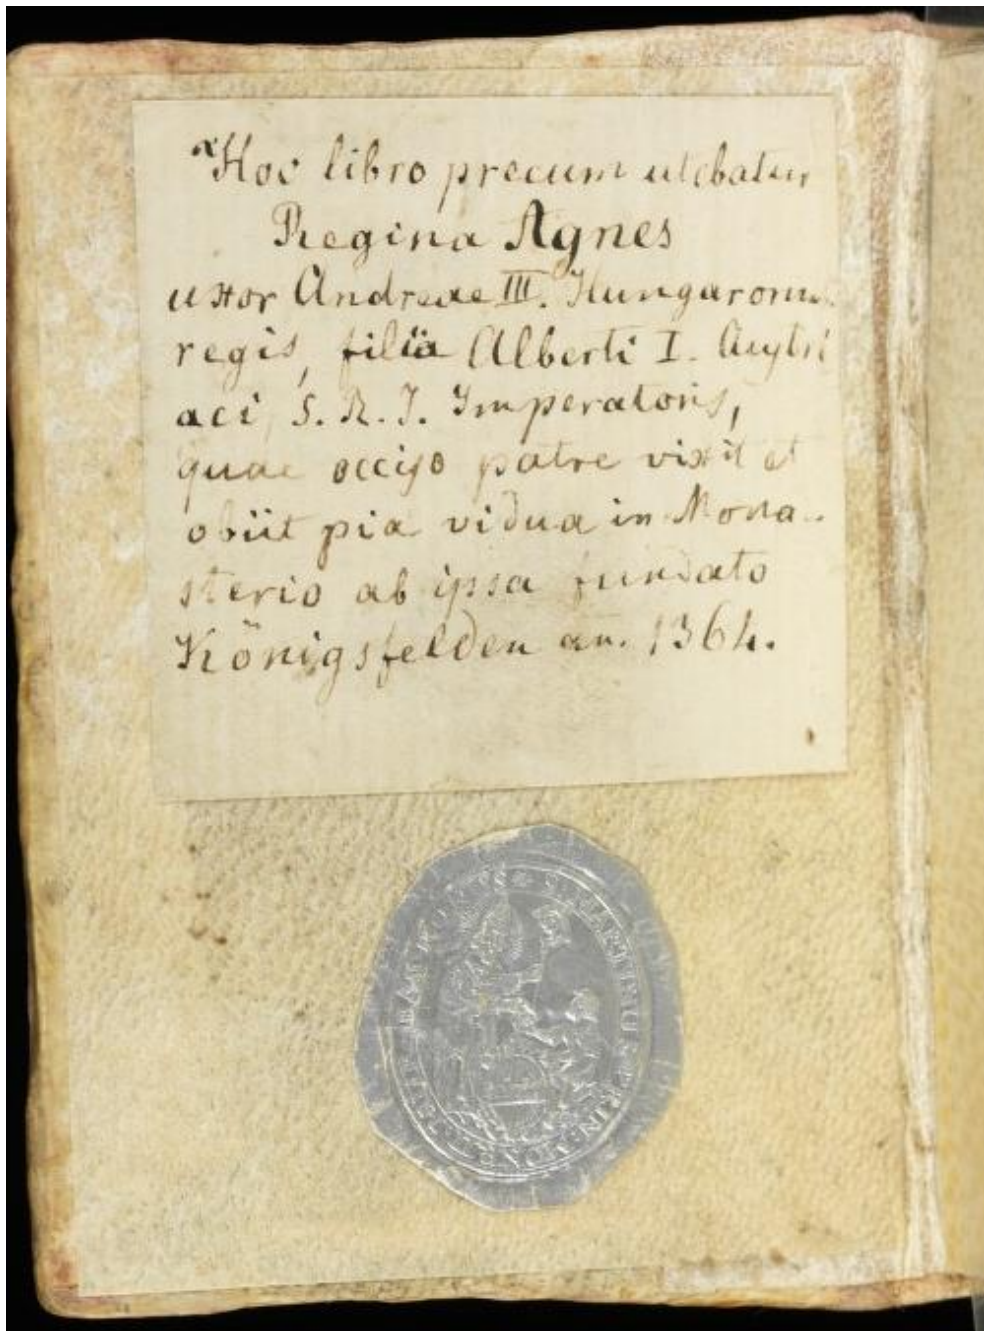 Hoc libro precum utebatur
Regina Agnes
uxor Andreae III. Hungarorum
regis, filia Alberti I. Austri
aci, S. R. I. Imperatoris,
quae occiso patre vixit et
obiit pia vidua in Mona-
sterio ab ipsa fundato
Königsfelden an. 1364.